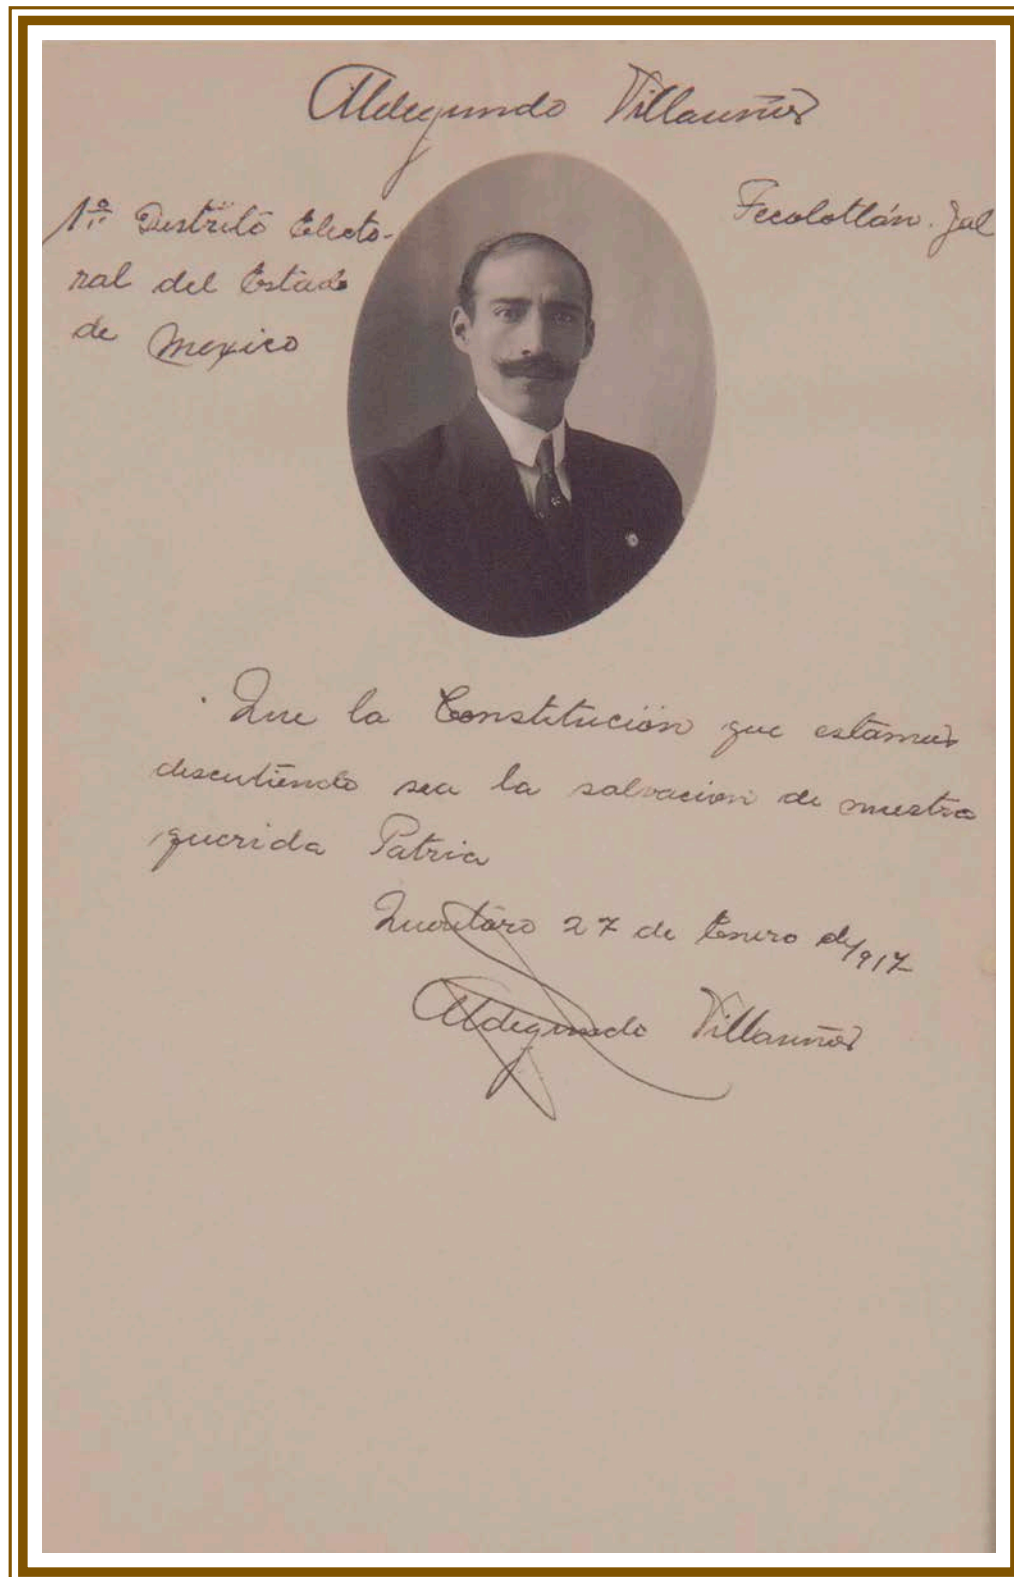 Aldegundo Villaseñor
1er Distrito Electo-
ral del Estado
de Mexico
Tecolotlán. Jal
Que la Constitución que estamos
discutiendo sea la salvacion de nuestra
querida Patria
Querétaro 27 de Enero de 1917
Aldegundo Villaseñor